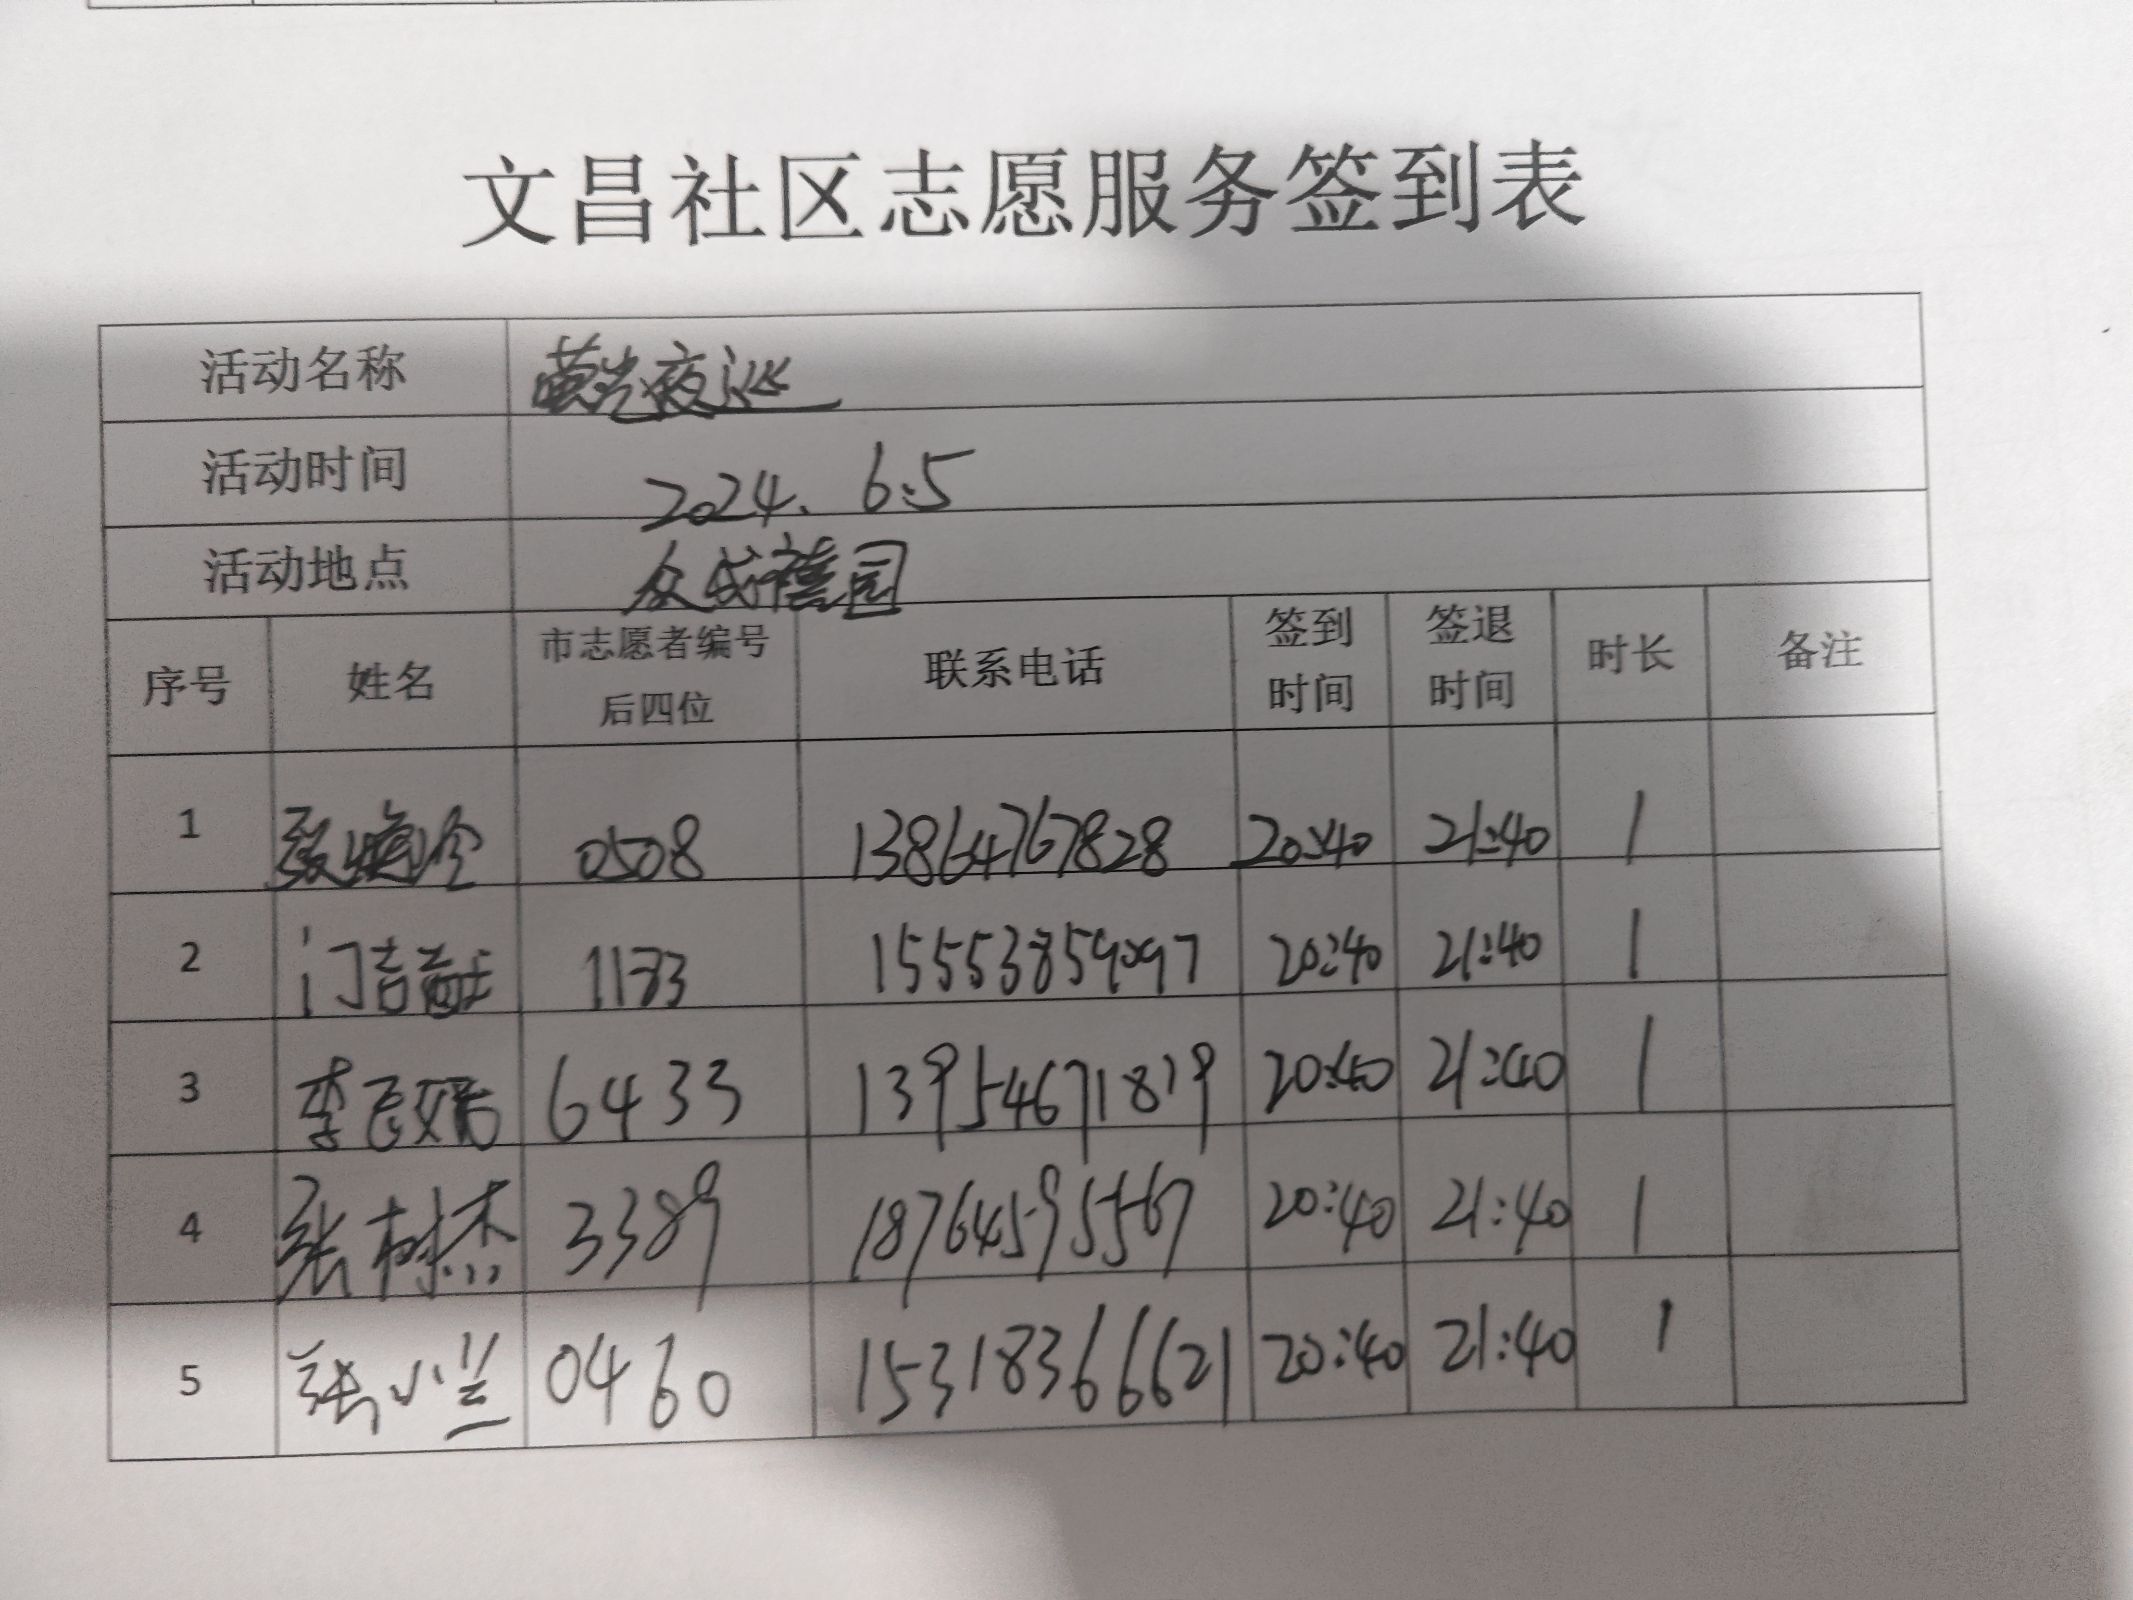 文昌社区志愿服务签到表
活动名称 萤光夜巡
活动时间 2024.6.5
活动地点 众成禧园
序号 姓名 市志愿者编号后四位 联系电话 签到时间 签退时间 时长 备注
1 0508 13864767828 20:40 21:40 1
2 门吉 1173 15553859097 20:40 21:40 1
3 李 6433 13954671819 20:40 21:40 1
4 张树杰 3389 18764595567 20:40 21:40 1
5 张小兰 0460 15318366621 20:40 21:40 1